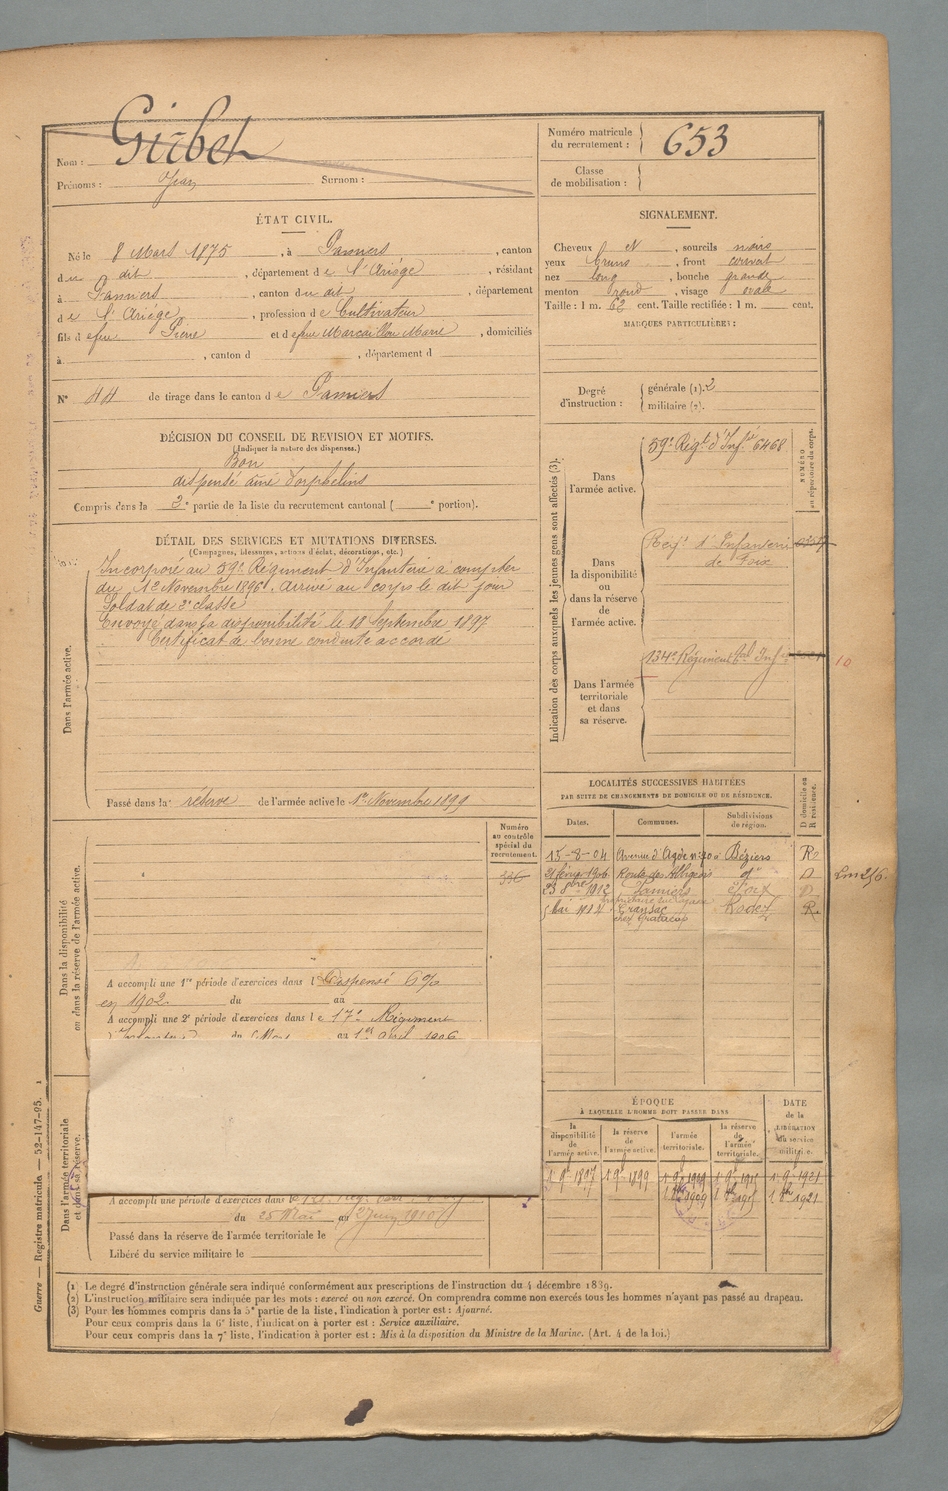 Nom : Girbet
Prénoms : Jean Surnom :
Numéro matricule du recrutement : 653
Classe de mobilisation :
ÉTAT CIVIL.
Né le 8 Mars 1875, à Pamiers, canton
du dit, département de l'Ariège, résidant
à Pamiers, canton du dit, département
de l'Ariège, profession de Cultivateur
fils de feu Pierre et de feue Marcaillou Marie, domiciliés
à , canton d , département d
N° 44 de tirage dans le canton de Pamiers
SIGNALEMENT.
Cheveux et , sourcils noirs
yeux bruns , front couvert
nez long , bouche grande
menton rond , visage ovale
Taille : 1 m. 62 cent. Taille rectifiée : 1 m. cent.
MARQUES PARTICULIÈRES :
Degré d'instruction : générale (1). 2
militaire (2).
DÉCISION DU CONSEIL DE REVISION ET MOTIFS.
(Indiquer la nature des dispenses.)
Bon
dispensé ainé d'orphelins
Compris dans la 2e partie de la liste du recrutement cantonal ( e portion).
DÉTAIL DES SERVICES ET MUTATIONS DIVERSES.
(Campagnes, blessures, actions d'éclat, décorations, etc.)
Dans l'armée active.
Incorporé au 59e Régiment d'Infanterie à compter
du 1e Novembre 1896. Arrivé au corps le dit jour
Soldat de 2e classe
Envoyé dans la disponibilité le 18 Septembre 1897
Certificat de bonne conduite accordé
Passé dans la réserve de l'armée active le 1er Novembre 1899
Indication des corps auxquels les jeunes gens sont affectés (3).
NUMÉRO au répertoire du corps.
Dans l'armée active.
59e Régt d'Infie 6468
Dans la disponibilité ou dans la réserve de l'armée active.
Regt d'Infanterie
de Foix
Dans l'armée territoriale et dans sa réserve.
134e Régiment tal Infie
10
LOCALITÉS SUCCESSIVES HABITÉES
PAR SUITE DE CHANGEMENTS DE DOMICILE OU DE RÉSIDENCE.
D domicile ou R résidence.
Dates. Communes. Subdivisions de région.
15-8-04 Avenue d'Agde n° 20 à Béziers R
21 février 1906 Route des Albigeois do D
23 8bre 1912 Pamiers Foix D
5 Mai 1914 Cransac Rodez R
chez Gratacap
Numéro au contrôle spécial du recrutement.
336
Dans la disponibilité ou dans la réserve de l'armée active.
A accompli une 1re période d'exercices dans l Dispensé 6%
en 1902 du au
A accompli une 2e période d'exercices dans le 17e Régiment
d'Infanterie du 5 Mars au 1er avril 1906
Dans l'armée territoriale et dans sa réserve.
A accompli une période d'exercices dans le
du 25 Mai au 2 Juin 1910
Passé dans la réserve de l'armée territoriale le
Libéré du service militaire le
ÉPOQUE
À LAQUELLE L'HOMME DOIT PASSER DANS
DATE de la LIBÉRATION du service militaire.
la disponibilité de l'armée active. la réserve de l'armée active. l'armée territoriale. la réserve de l'armée territoriale.
1 9e 1897 1 9e 1899 1 9e 1909 1 9e 1915 1 9e 1921
1 8bre 1909 1 8bre 1915 1 8bre 1921
(1) Le degré d'instruction générale sera indiqué conformément aux prescriptions de l'instruction du 4 décembre 1889.
(2) L'instruction militaire sera indiquée par les mots : exercé ou non exercé. On comprendra comme non exercés tous les hommes n'ayant pas passé au drapeau.
(3) Pour les hommes compris dans la 5e partie de la liste, l'indication à porter est : Ajourné.
Pour ceux compris dans la 6e liste, l'indication à porter est : Service auxiliaire.
Pour ceux compris dans la 7e liste, l'indication à porter est : Mis à la disposition du Ministre de la Marine. (Art. 4 de la loi.)
Guerre — Registre matricule — 52-147-95. 1